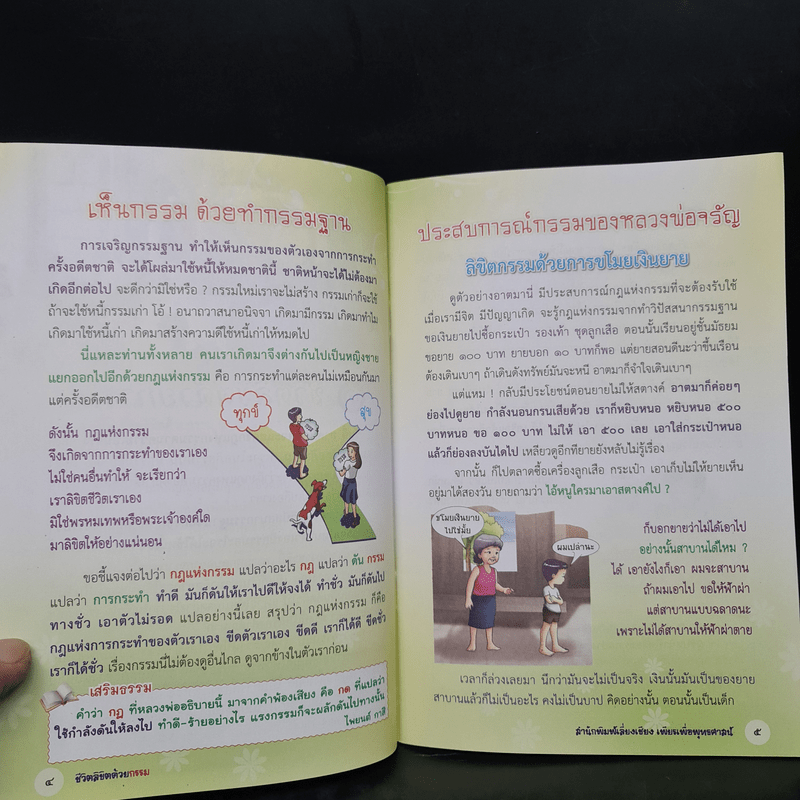 เห็นกรรม ด้วยทำกรรมฐาน
การเจริญกรรมฐาน ทำให้เห็นกรรมของตัวเองจากการกระทำ
ครั้งอดีตชาติ จะได้โผล่มาใช้หนี้ให้หมดชาตินี้ ชาติหน้าจะได้ไม่ต้องมา
เกิดอีกต่อไป จะดีกว่ามิใช่หรือ ? กรรมใหม่เราจะไม่สร้าง กรรมเก่าก็จะใช้
ถ้าจะใช้หนี้กรรมเก่า โอ้ ! อนาถวาสนาอนิจจา เกิดมามีกรรม ! เกิดมาทำไม
เกิดมาใช้หนี้เก่า เกิดมาสร้างความดีใช้หนี้เก่าให้หมดไป
นี่แหละท่านทั้งหลาย คนเราเกิดมาจึงต่างกันไปเป็นหญิงชาย
แยกออกไปอีกด้วยกฎแห่งกรรม คือ การกระทำแต่ละคนไม่เหมือนกันมา
แต่ครั้งอดีตชาติ
ทุกข์
สุข
ดังนั้น กฎแห่งกรรม
จึงเกิดจากการกระทำของเราเอง
ไม่ใช่คนอื่นทำให้ จะเรียกว่า
เราลิขิตชีวิตเราเอง
มิใช่พรหมเทพหรือพระเจ้าองค์ใด
มาลิขิตให้อย่างแน่นอน
ขอชี้แจงต่อไปว่า กฎแห่งกรรม แปลว่าอะไร กฎ แปลว่า ดัน กรรม
แปลว่า การกระทำ ทำดี มันก็ดันให้เราไปดีให้จงได้ ทำชั่ว มันก็ดันไป
ทางชั่ว เอาตัวไม่รอด แปลอย่างนี้เลย สรุปว่า กฎแห่งกรรม ก็คือ
กฎแห่งการกระทำของตัวเราเอง ขีดตัวเราเอง ขีดดี เราก็ได้ดี ขีดชั่ว
เราก็ได้ชั่ว เรื่องกรรมนี้ไม่ต้องดูอื่นไกล ดูจากข้างในตัวเราก่อน
เสริมธรรม
คำว่า กฎ ที่หลวงพ่ออธิบายนี้ มาจากคำพ้องเสียง คือ กด ที่แปลว่า
ใช้กำลังดันให้ลงไป ทำดี-ร้ายอย่างไร แรงกรรมก็จะผลักดันไปทางนั้น
ไพยนต์ กาสี
๔ ชีวิตลิขิตด้วยกรรม
ประสบการณ์กรรมของหลวงพ่อจรัญ
ลิขิตกรรมด้วยการขโมยเงินยาย
ดูตัวอย่างอาตมานี่ มีประสบการณ์กฎแห่งกรรมที่จะต้องรับใช้
เมื่อเรามีจิต มีปัญญาเกิด จะรู้กฎแห่งกรรมจากทำวิปัสสนากรรมฐาน
ขอเงินยายไปซื้อกระเป๋า รองเท้า ชุดลูกเสือ ตอนนั้นเรียนอยู่ชั้นมัธยม
ขอยาย ๑๐๐ บาท ยายบอก ๑๐ บาทก็พอ แต่ยายสอนดีนะว่าขึ้นเรือน
ต้องเดินเบาๆ ถ้าเดินดังทรัพย์มันจะหนี อาตมาก็จำใจเดินเบาๆ
แต่แหม ! กลับมีประโยชน์ตอนยายไม่ให้สตางค์ อาตมาก็ค่อยๆ
ย่องไปดูยาย กำลังนอนกรนเสียด้วย เราก็หยิบหนอ หยิบหนอ ๕๐๐
บาทหนอ ขอ ๑๐๐ บาท ไม่ให้ เอา ๕๐๐ เลย เอาใส่กระเป๋าหนอ
แล้วก็ย่องลงบันไดไป เหลียวดูอีกทียายยังหลับไม่รู้เรื่อง
จากนั้น ก็ไปตลาดซื้อเครื่องลูกเสือ กระเป๋า เอาเก็บไม่ให้ยายเห็น
อยู่มาได้สองวัน ยายถามว่า ไอ้หนูใครมาเอาสตางค์ไป ?
ขโมยเงินยาย
ไปใช่มั้ย
ผมเปล่านะ
ก็บอกยายว่าไม่ได้เอาไป
อย่างนั้นสาบานได้ไหม ?
ได้ เอายังไงก็เอา ผมจะสาบาน
ถ้าผมเอาไป ขอให้ฟ้าผ่า
แต่สาบานแบบฉลาดนะ
เพราะไม่ได้สาบานให้ฟ้าผ่าตาย
เวลาก็ล่วงเลยมา นึกว่ามันจะไม่เป็นจริง เงินนั้นมันเป็นของยาย
สาบานแล้วก็ไม่เป็นอะไร คงไม่เป็นบาป คิดอย่างนั้น ตอนนั้นเป็นเด็ก
สำนักพิมพ์เลี่ยงเชียง เพียรเพื่อพุทธศาสน์ ๕